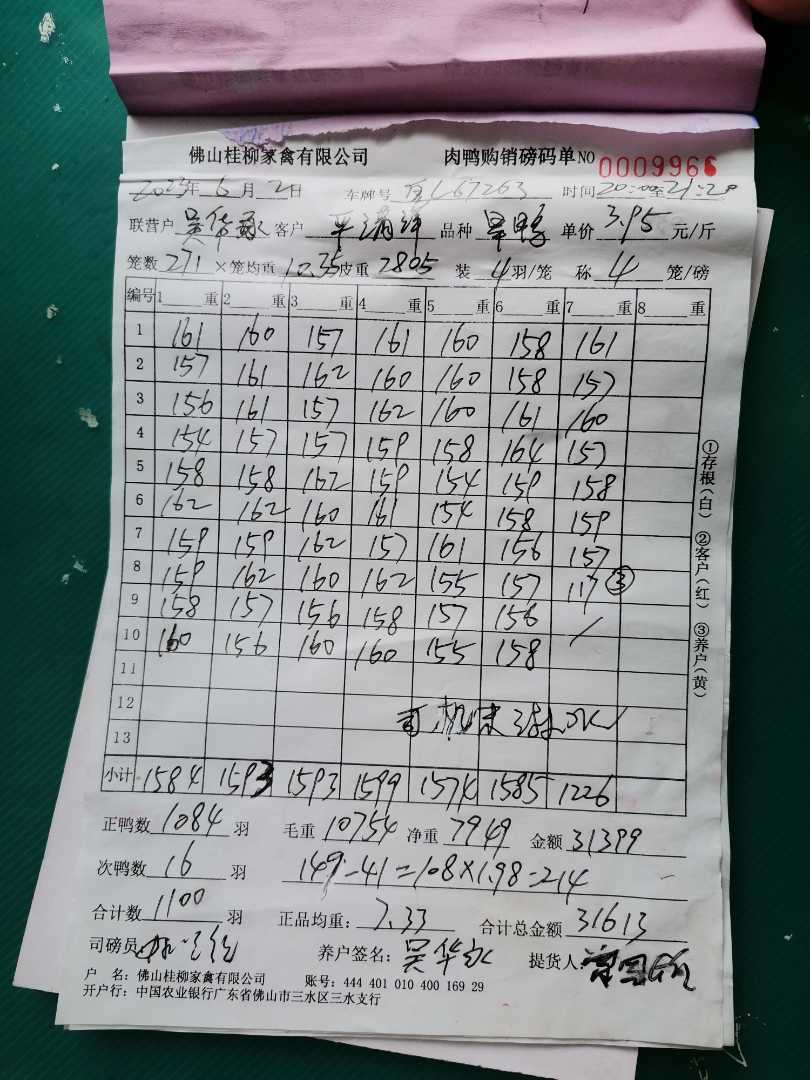 佛山桂柳家禽有限公司 肉鸭购销磅码单 NO 0009966
2023年6月2日 车牌号 L67263 时间 20:00至21:20
联营户 吴华 客户 品种 旱鸭 单价 3.95 元/斤
笼数 271 ×笼均重 10.35 皮重 2805 装 4 羽/笼 称 4 笼/磅
编号 1 重 2 重 3 重 4 重 5 重 6 重 7 重 8 重
1 161 160 157 161 160 158 161
2 157 161 162 160 160 158 157
3 156 161 157 162 160 161 160
4 154 157 157 159 158 164 157
5 158 158 162 159 154 159 158
6 162 162 160 161 154 158 159
7 159 159 162 157 161 156 157
8 159 162 160 162 155 157 117 ③
9 158 157 156 158 157 156 /
10 160 156 160 160 155 158
11
12 司机
13
小计 1584 1593 1593 1599 1574 1585 1226
正鸭数 1084 羽 毛重 10754 净重 7949 金额 31399
次鸭数 16 羽 149-41=108×1.98=214
合计数 1100 羽 正品均重: 7.33 合计总金额 31613
司磅员: 养户签名: 吴华 提货人:
户 名: 佛山桂柳家禽有限公司 账号: 444 401 010 400 169 29
开户行: 中国农业银行广东省佛山市三水区三水支行
①存根(白) ②客户(红) ③养户(黄)